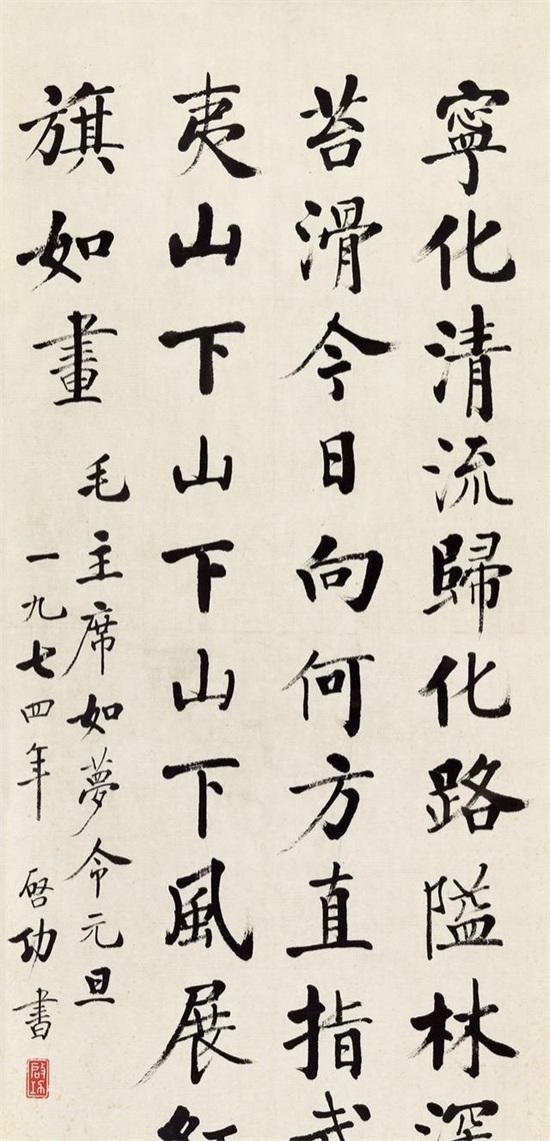 寧化清流歸化路隘林深
苔滑今日向何方直指武
夷山下山下山下風展紅
旗如畫
毛主席如夢令元旦
一九七四年 啓功書
啓功